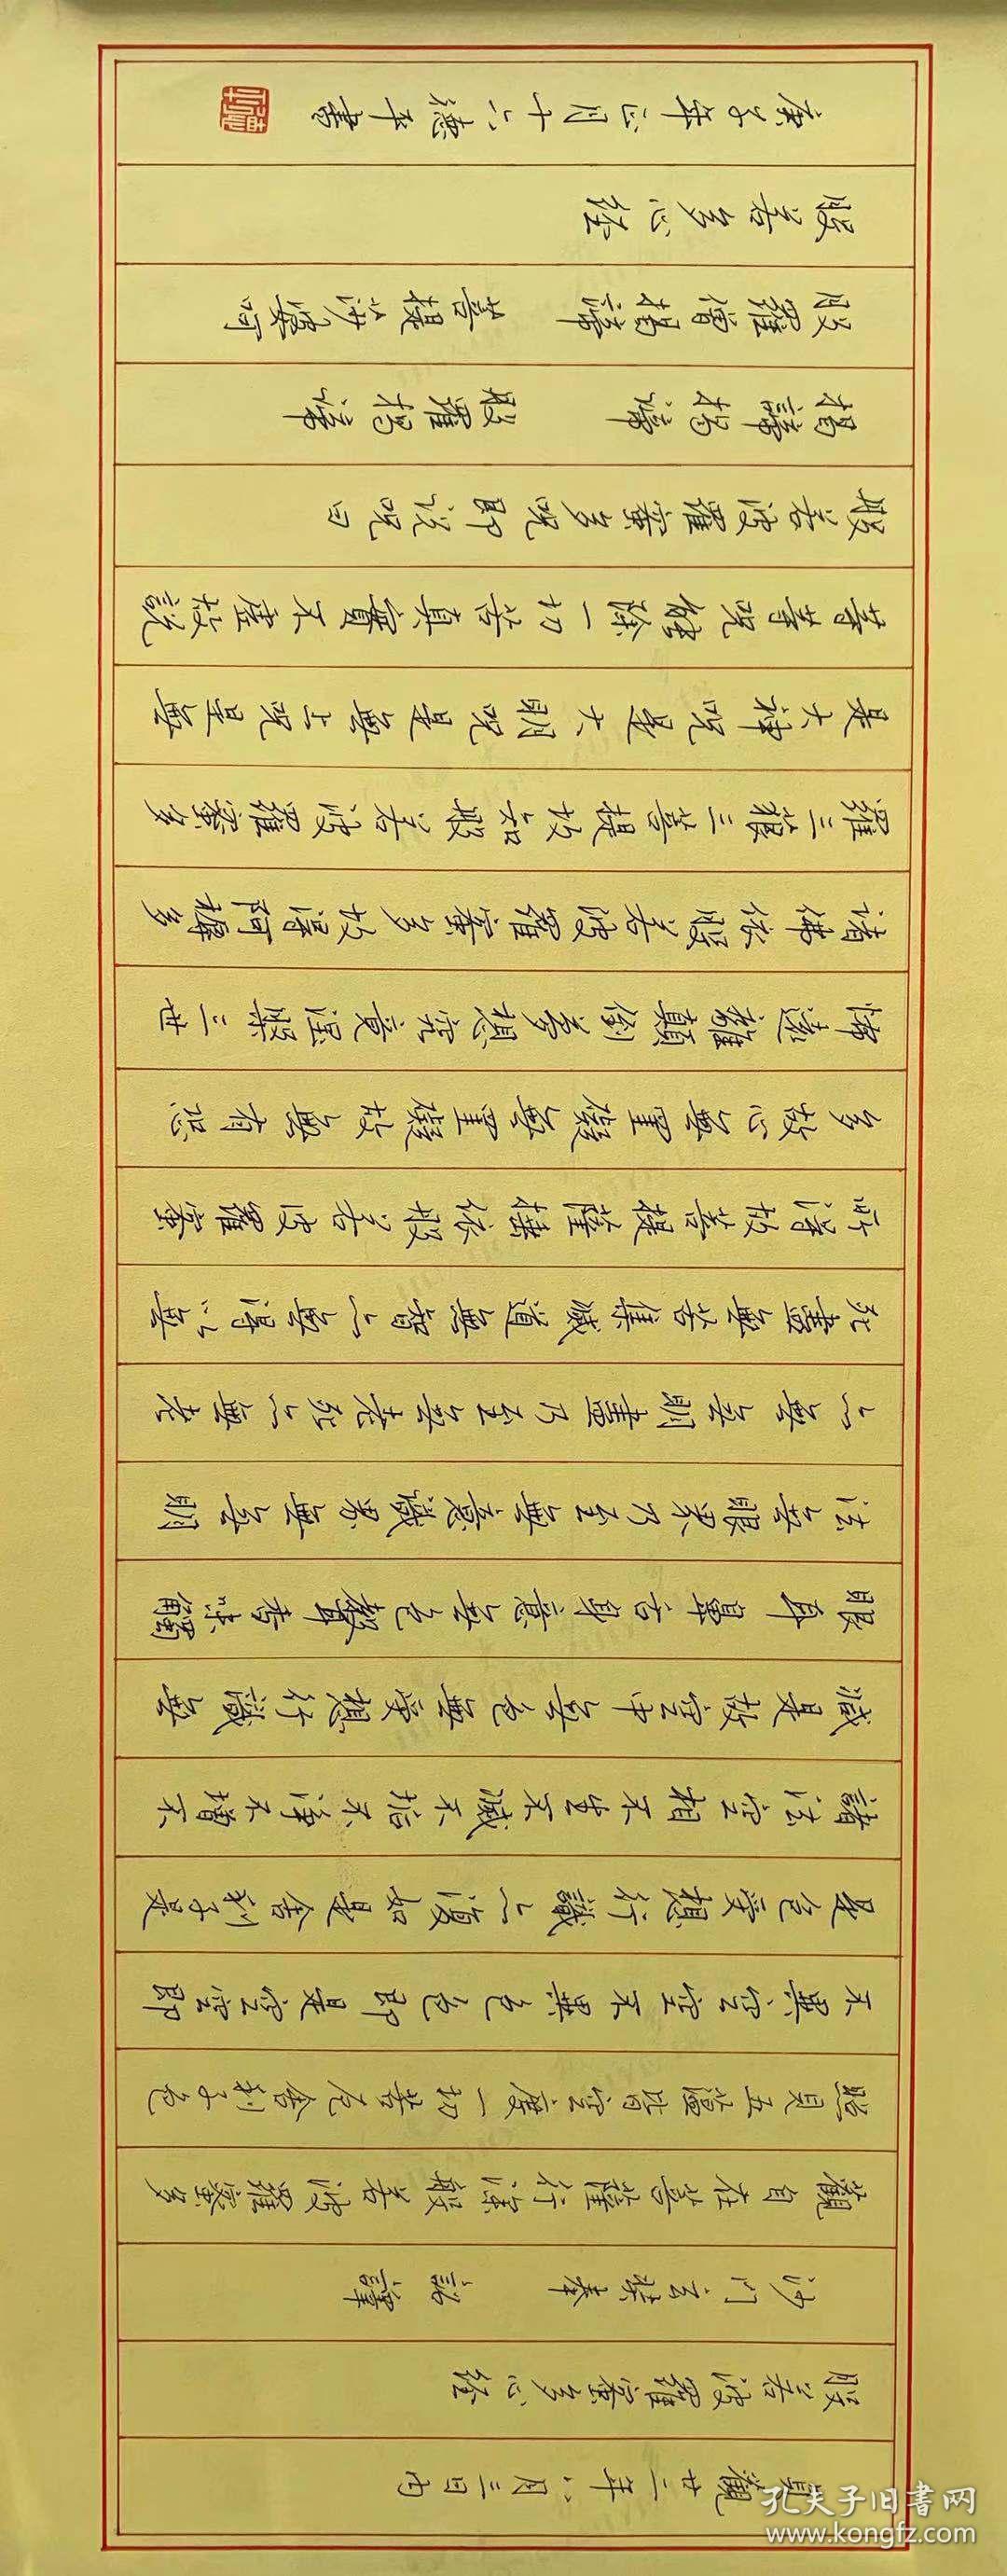 貞觀廿二年八月三日內
般若波羅蜜多心經
沙門玄奘奉 詔譯
觀自在菩薩行深般若波羅蜜多
照見五蘊皆空度一切苦厄舍利子色
不異空空不異色色即是空空即
是色受想行識亦復如是舍利子是
諸法空相不生不滅不垢不淨不增不
減是故空中無色無受想行識無
眼耳鼻舌身意無色聲香味觸
法無眼界乃至無意識界無無明
亦無無明盡乃至無老死亦無老
死盡無苦集滅道無智亦無得以無
所得故菩提薩埵依般若波羅蜜
多故心無罣礙無罣礙故無有恐
怖遠離顛倒夢想究竟涅槃三世
諸佛依般若波羅蜜多故得阿耨多
羅三藐三菩提故知般若波羅蜜多
是大神咒是大明咒是無上咒是無
等等咒能除一切苦真實不虛故說
般若波羅蜜多咒即说咒曰
揭諦揭諦 般羅揭諦
般羅僧揭諦 菩提莎婆訶
般若多心經
庚子年正月十六德平書
孔夫子旧书网
www.kongfz.com